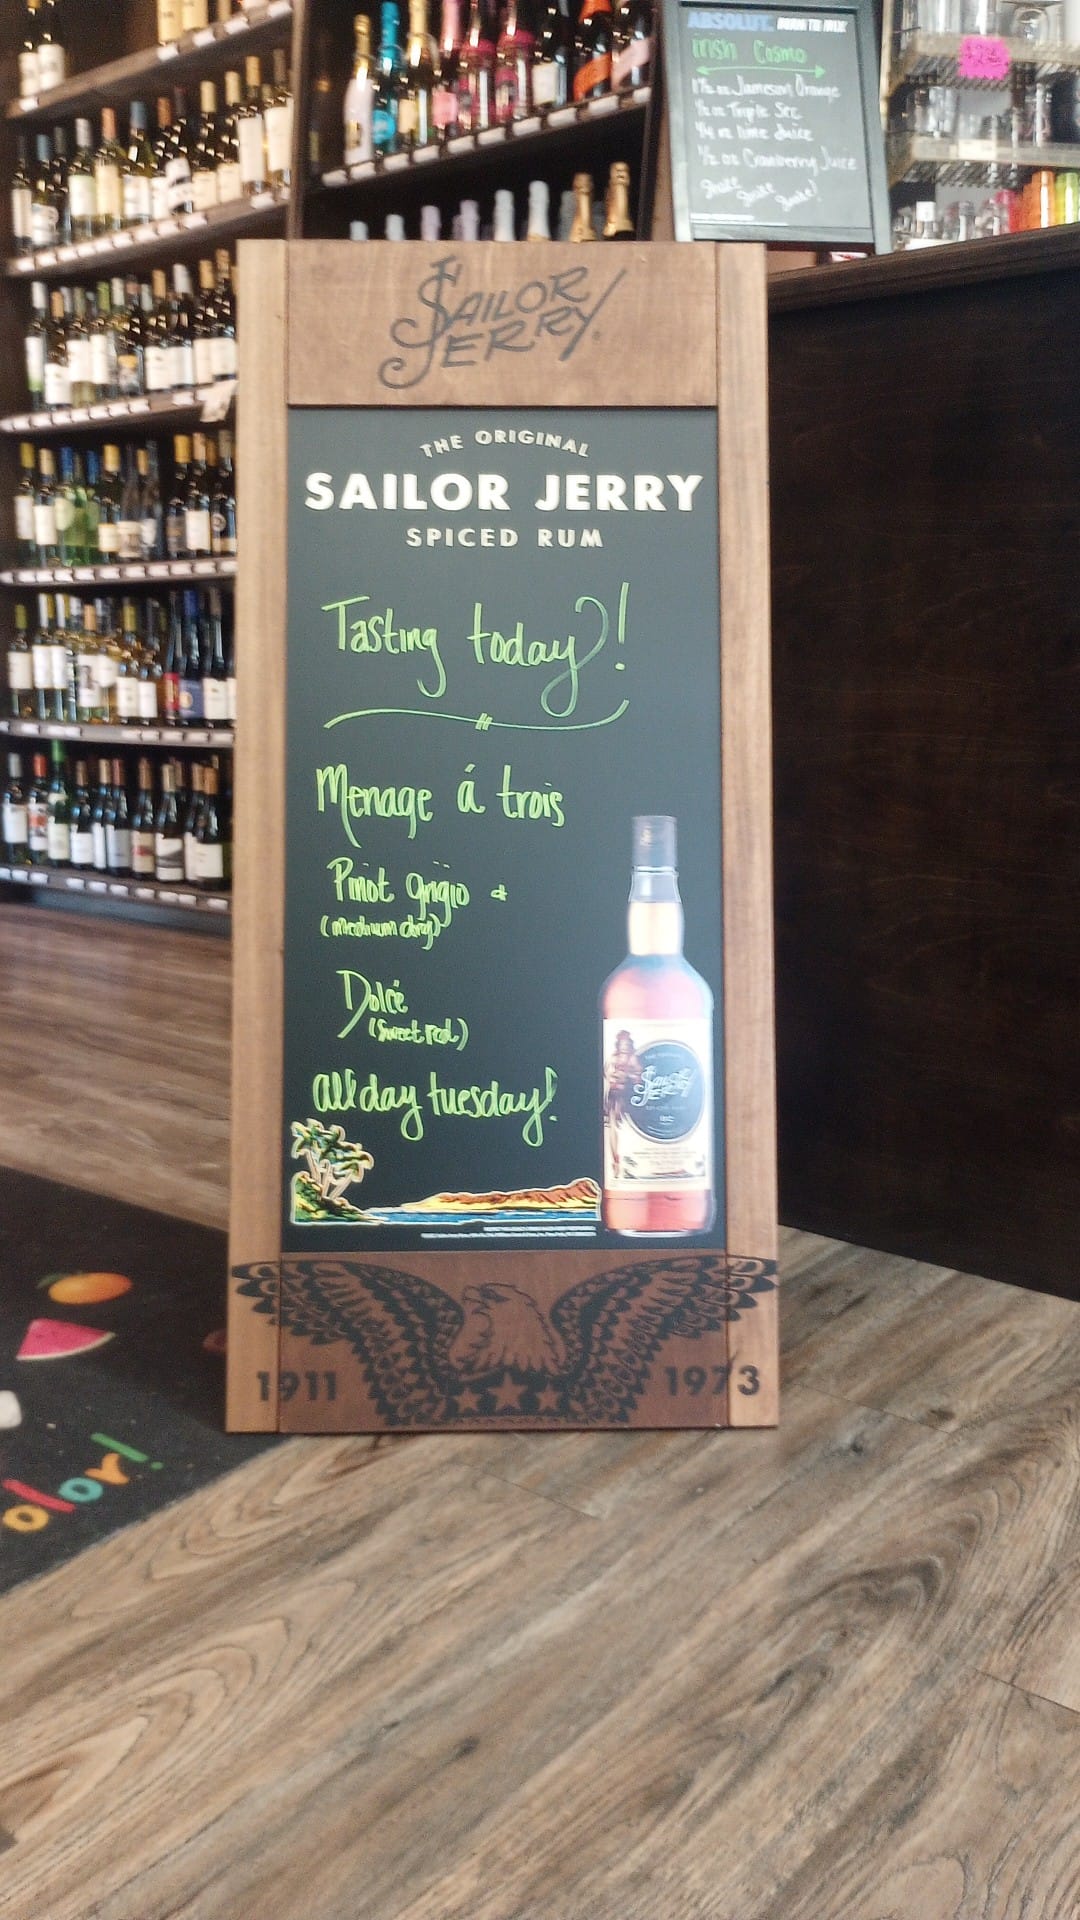 ABSOLUT. BORN TO MIX
Irish Cosmo
1½ oz Jameson Orange
½ oz Triple Sec
¼ oz lime Juice
½ oz Cranberry Juice
Shake
Shake
Shake!
SAILOR
JERRY
THE ORIGINAL
SAILOR JERRY
SPICED RUM
Tasting today!
Menage á trois
Pinot grigio +
(medium dry)
Dolcé
(Sweet red)
all day tuesday!
SAILOR
JERRY
1911 1973
olor!